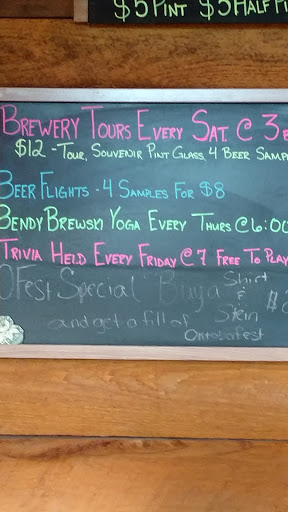 $5 PINT $3 HALF PI
BREWERY TOURS EVERY SAT. @ 3
$12 - TOUR, SOUVENIR PINT GLASS, 4 BEER SAMP
BEER FLIGHTS - 4 SAMPLES FOR $8
BENDY BREWSKI YOGA EVERY THURS @ 6:00
TRIVIA HELD EVERY FRIDAY @ 7 FREE TO PLAY
OFest Special Buy a Shirt & Stein $
and get a fill of Oktobafest